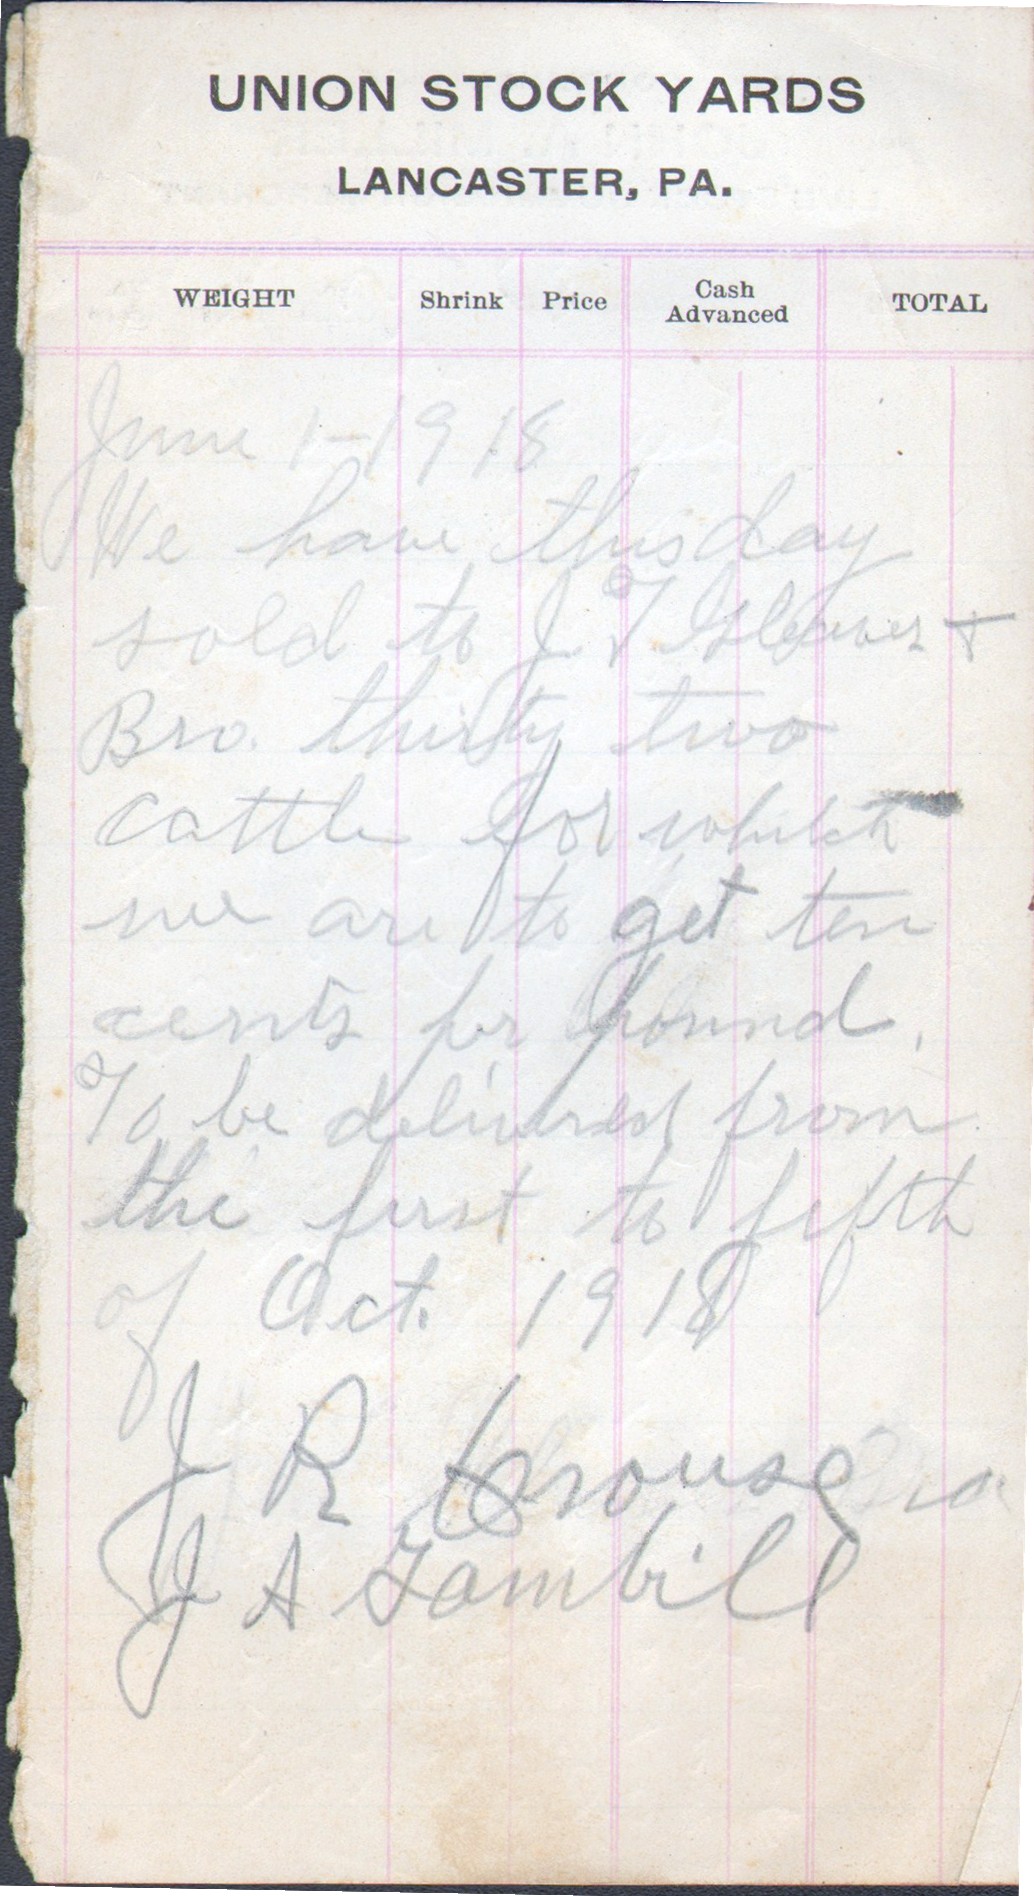 UNION STOCK YARDS
LANCASTER, PA.
WEIGHT Shrink Price Cash Advanced TOTAL
June 1-1918
We have this day
sold to J T &
Bro. thirty two
cattle for which
we are to get ten
cents per pound.
To be delivered from
the first to fifth
of Oct. 1918
J R Crouse
J A Gambill